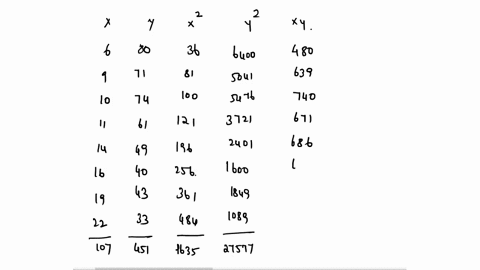 x y x² y² xy.
6 80 36 6400 480
9 71 81 5041 639
10 74 100 5476 740
11 61 121 3721 671
14 49 196 2401 686
16 40 256. 1600
19 43 361 1849
22 33 484 1089
107 451 1635 27577